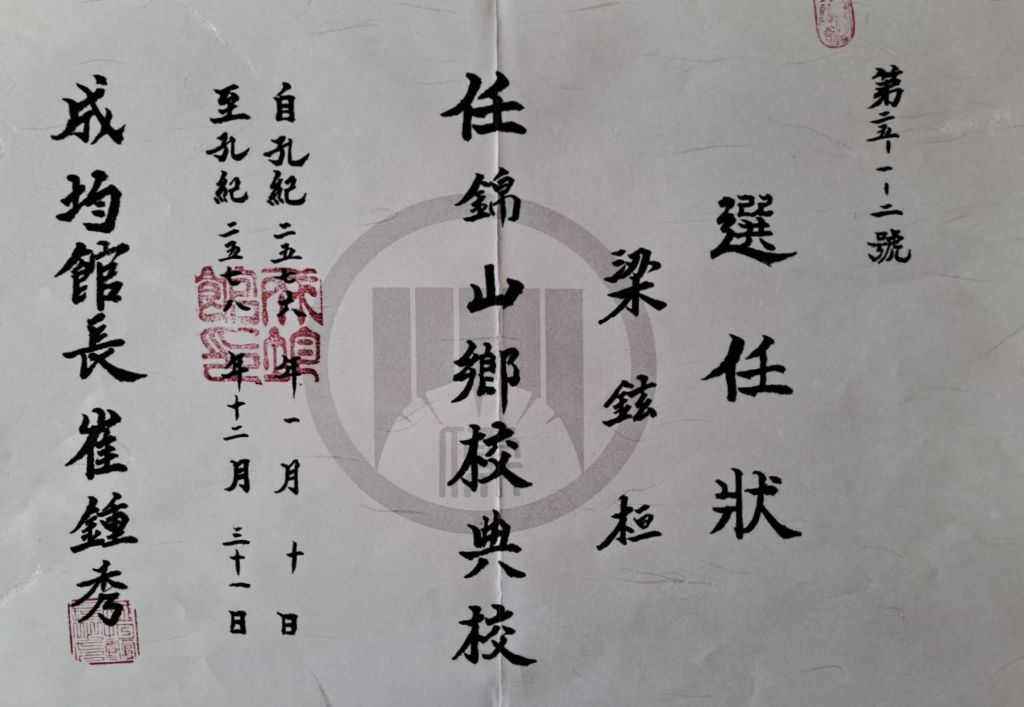 第二五-一-二號
選任狀
梁鉉桓
任錦山鄉校典校
自孔紀二五七六年一月十日
至孔紀二五七八年十二月三十一日
成均館長崔鍾秀